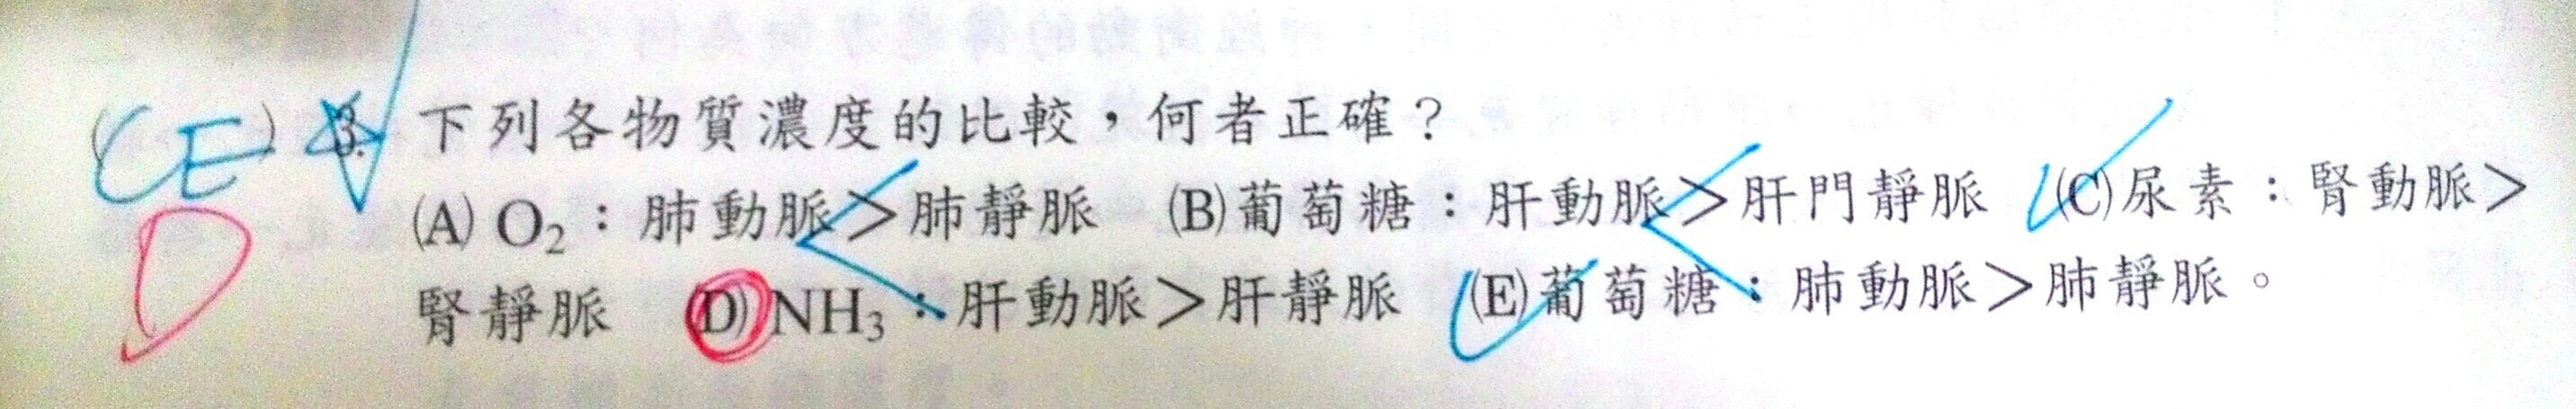 (CE) 3. 下列各物質濃度的比較,何者正確?
D (A) O₂:肺動脈>肺靜脈 (B)葡萄糖:肝動脈>肝門靜脈 (C)尿素:腎動脈>
腎靜脈 (D) NH₃:肝動脈>肝靜脈 (E)葡萄糖:肺動脈>肺靜脈。